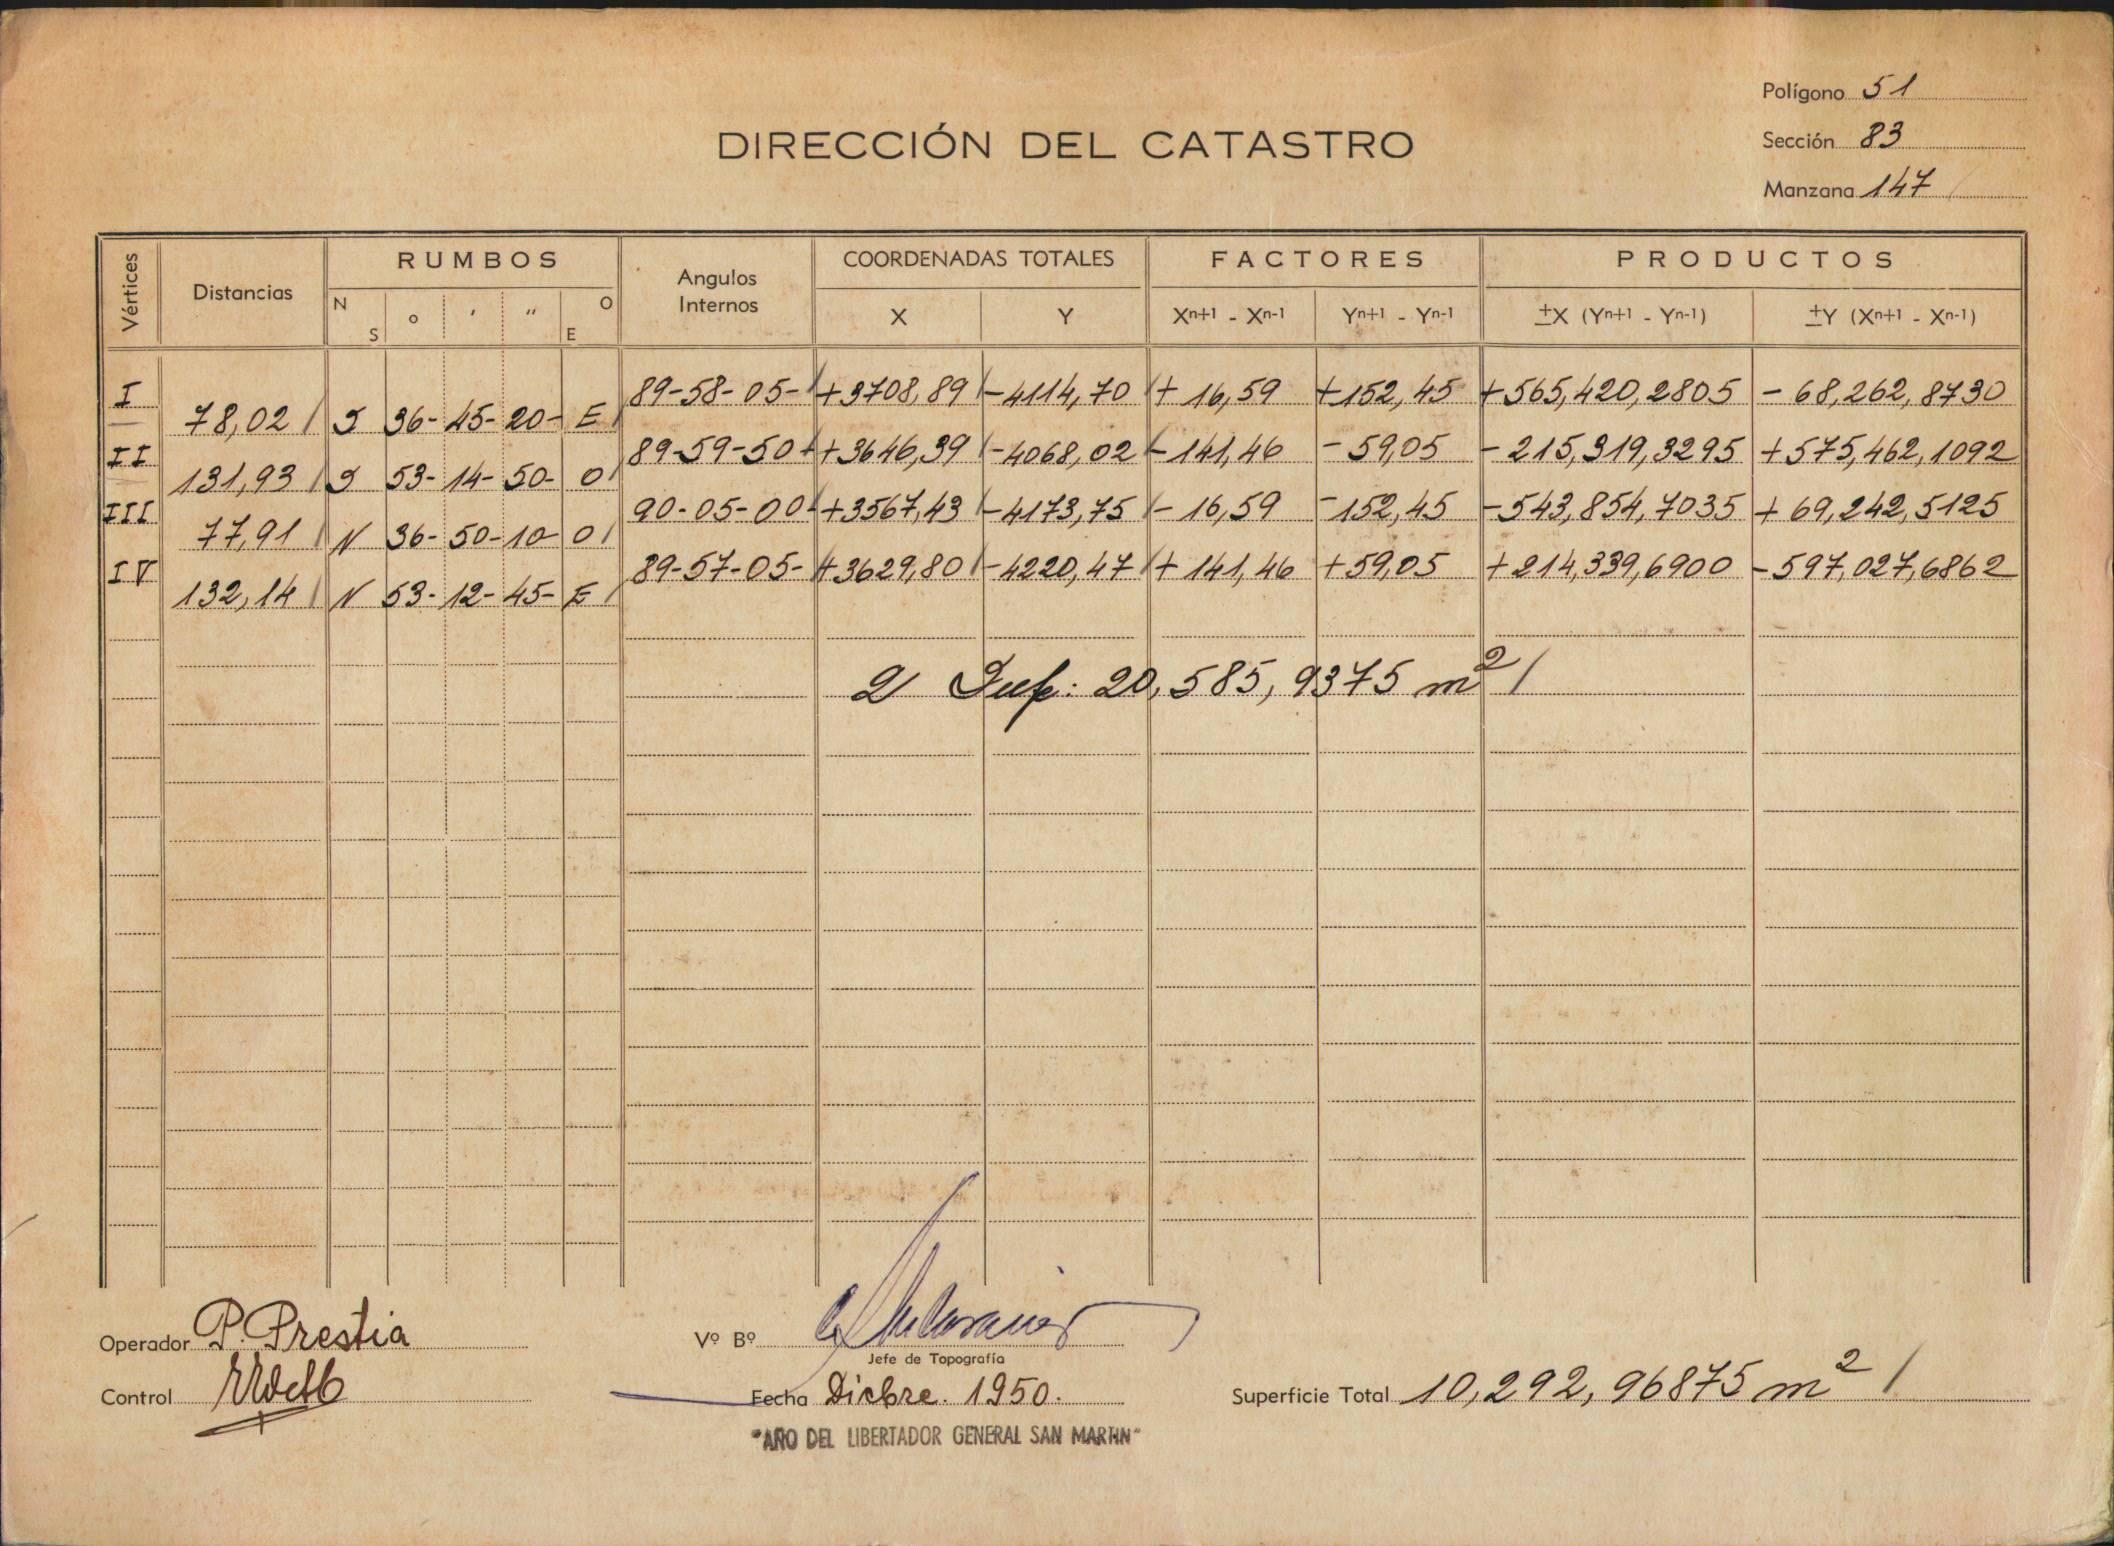 Polígono 51
DIRECCIÓN DEL CATASTRO
Sección 83
Manzana 147
Vértices Distancias RUMBOS Angulos Internos COORDENADAS TOTALES FACTORES PRODUCTOS
N S o ' " O E X Y Xn+1 - Xn-1 Yn+1 - Yn-1 ±X (Yn+1 - Yn-1) ±Y (Xn+1 - Xn-1)
I 89-58-05- +3708,89 -4114,70 + 16,59 +152,45 +565,420,2805 - 68,262,8730
78,02 S 36- 45- 20- E
II 89-59-50 +3646,39 -4068,02 -141,46 - 59,05 - 215,319,3295 +575,462,1092
131,93 S 53- 14- 50- O
III 90-05-00 +3567,43 -4173,75 - 16,59 -152,45 -543,854,7035 + 69,242,5125
77,91 N 36- 50- 10- O
IV 89-57-05- +3629,80 -4220,47 + 141,46 +59,05 +214,339,6900 -597,027,6862
132,14 N 53- 12- 45- E
2 Sup: 20,585,9375 m2
Operador P. Prestia Vº Bº
Jefe de Topografía
Control Fecha Dicbre. 1950. Superficie Total 10,292,96875 m2
"AÑO DEL LIBERTADOR GENERAL SAN MARTIN"